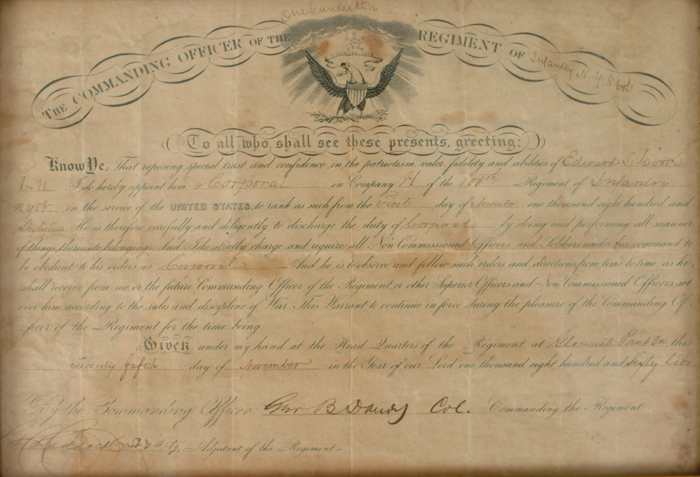 One hundredth
THE COMMANDING OFFICER OF THE REGIMENT OF Infantry N.Y.S. Vol.
To all who shall see these presents, greeting:
Know Ye, That reposing special trust and confidence in the patriotism, valor, fidelity and abilities of Edward L.
I do hereby appoint him Corporal in Company H of the 100th Regiment of Infantry
N.Y.S.V. in the service of the UNITED STATES, to rank as such from the day of one thousand eight hundred and
He is therefore carefully and diligently to discharge the duty of Corporal by doing and performing all manner
of things thereunto belonging. And I do strictly charge and require all Non Commissioned Officers and Soldiers under his command to
be obedient to his orders as Corporal And he is to observe and follow such orders and directions from time to time, as he
shall receive from me, or the future Commanding Officer of the Regiment, or other Superior Officers and Non Commissioned Officers set
over him according to the rules and discipline of War. This Warrant to continue in force during the pleasure of the Commanding Of-
ficer of the Regiment for the time being
Given under my hand at the Head Quarters of the Regiment at this
Twenty fifth day of November in the Year of our Lord one thousand eight hundred and Sixty
By the Commanding Officer Geo B Dandy Col. Commanding the Regiment
Adjutant of the Regiment